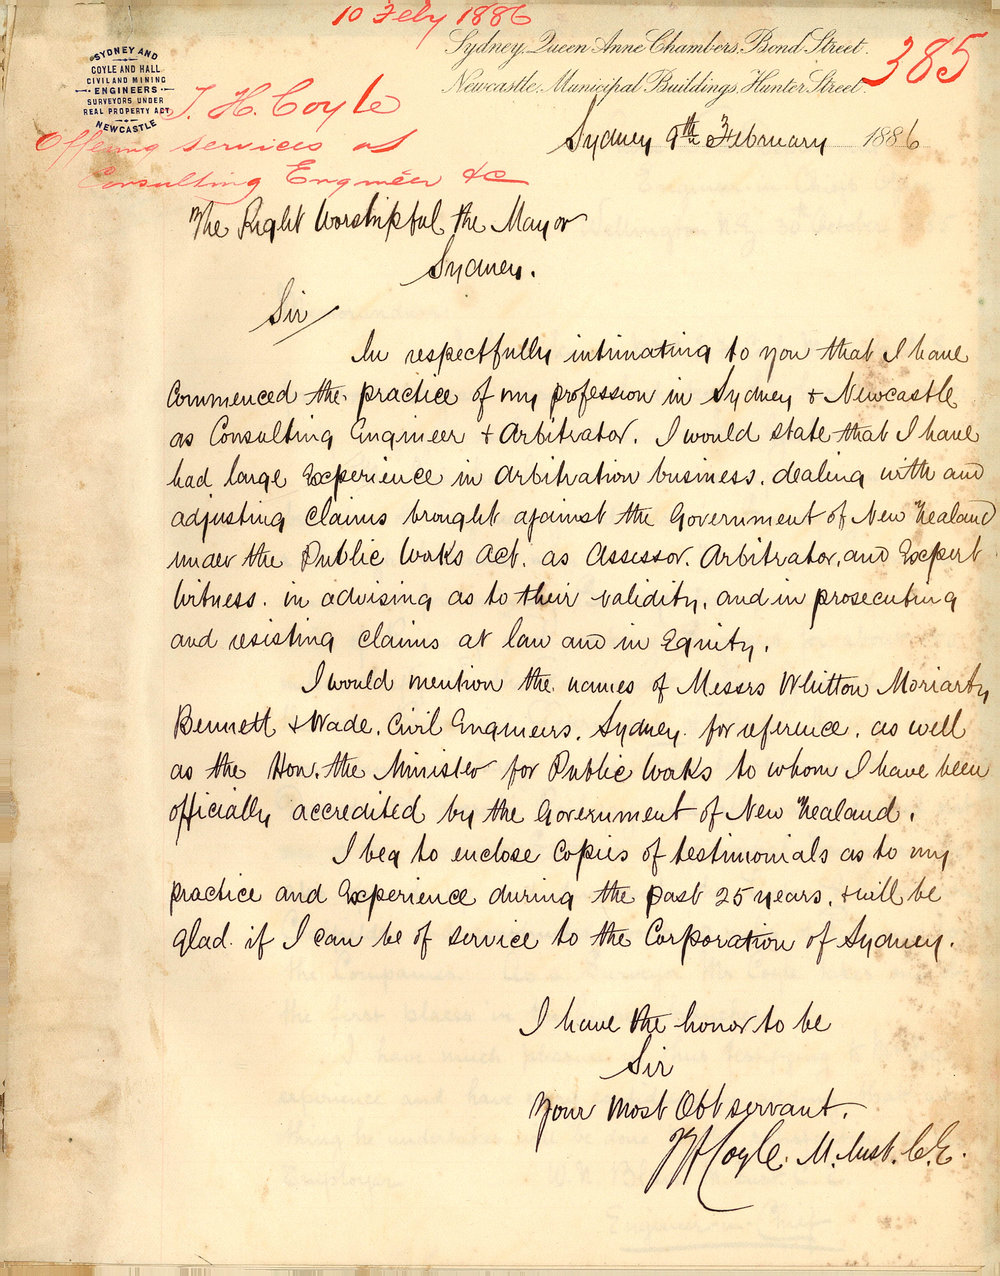 10 Feby 1886
Sydney, Queen Anne Chambers, Bond Street.
385
Newcastle, Municipal Buildings, Hunter Street.
SYDNEY AND
COYLE AND HALL
CIVIL AND MINING
ENGINEERS
SURVEYORS UNDER
REAL PROPERTY ACT
NEWCASTLE
T. H. Coyle
Offering services as
Consulting Engineer &c
Sydney 9th February 1886
The Right Worshipful the Mayor
Sydney.
Sir
In respectfully intimating to you that I have
commenced the practice of my profession in Sydney & Newcastle
as Consulting Engineer & Arbitrator. I would state that I have
had large Experience in Arbitration business, dealing with and
adjusting claims brought against the Government of New Zealand
under the Public Works Act, as Assessor, Arbitrator, and Expert
Witness, in advising as to their validity, and in prosecuting
and resisting claims at law and in Equity.
I would mention the names of Messrs Whitton Moriarty
Bennett & Wade, Civil Engineers, Sydney for reference, as well
as the Hon. the Minister for Public Works to whom I have been
officially accredited by the Government of New Zealand.
I beg to enclose copies of testimonials as to my
practice and Experience during the past 25 years, & will be
glad if I can be of service to the Corporation of Sydney.
I have the honor to be
Sir
Your Most Obt servant.
TH Coyle. M. Inst. C.E.